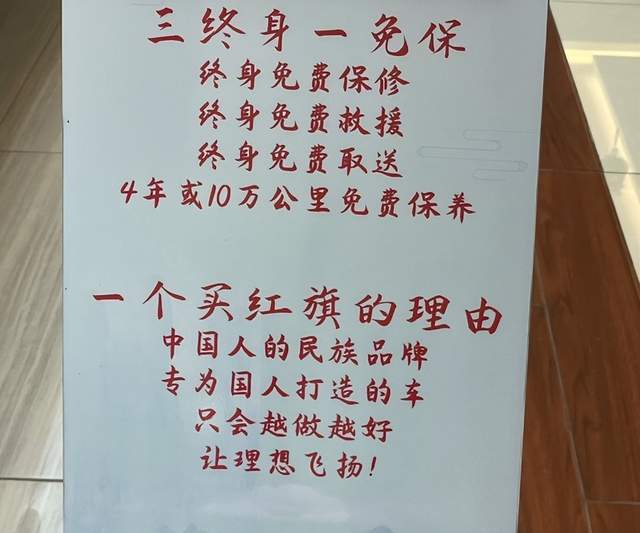 三终身一免保
终身免费保修
终身免费救援
终身免费取送
4年或10万公里免费保养
一个买红旗的理由
中国人的民族品牌
专为国人打造的车
只会越做越好
让理想飞扬！